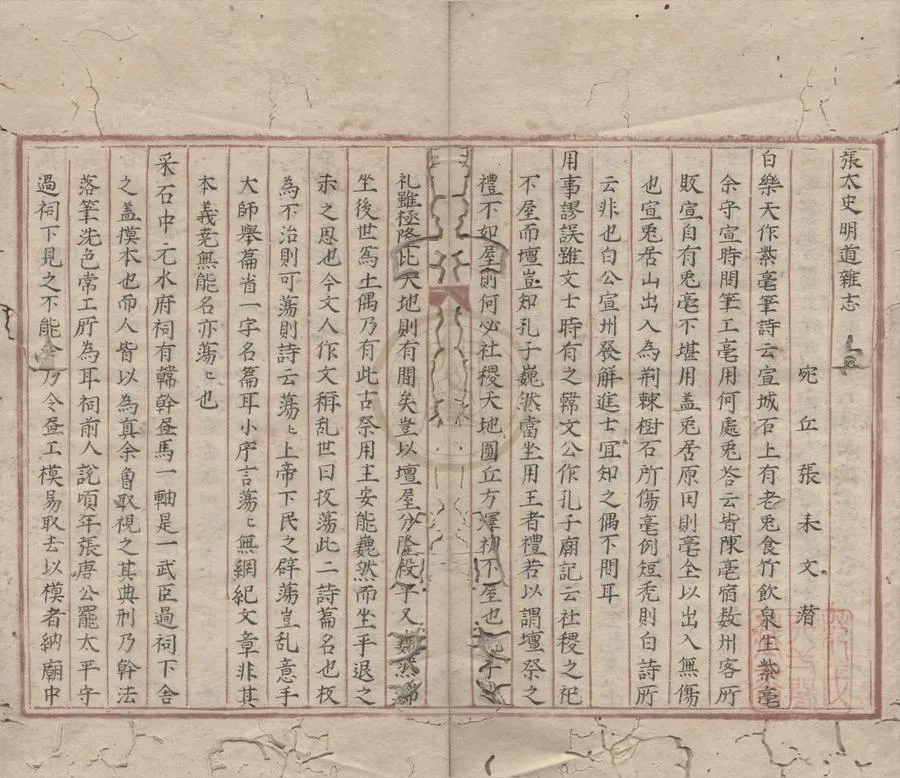 張太史明道雜志
宛丘張耒文潜
白樂天作紫毫筆詩云宣城石上有老兎食竹飲泉生紫毫
余守宣時問筆工毫用何處兎荅云皆陳亳宿数州客所
販宣自有兎毫不堪用盖兎居原田則毫全以出入無傷
也宣兎居山出入為荆棘樹石所傷毫例短禿則白詩所
云非也白公宣州發解進士宜知之偶不問耳
用事謬誤雖文士時有之韓文公作孔子廟記云社稷之祀
不屋而壇豈如孔子巍然當坐用王者禮若以謂壇祭之
禮不如屋則何必社稷天地圓丘方澤初不屋也孔子之
礼雖極隆比天地則有間矣豈以壇屋分隆殺乎又巍然
坐後世為土偶乃有此古祭用主安能巍然而坐乎退之
未之思也今文人作文稱乱世曰板蕩此二詩篇名也板
為不治則可蕩則詩云蕩〻上帝下民之辟蕩豈乱意乎
大師舉篇省一字名篇耳小序言蕩〻無綱紀文章非其
本義堯無能名亦蕩〻也
采石中元水府祠有韓幹畫馬一軸是一武臣過祠下舍
之盖摸本也而人皆以為真余魯取視之其典刑乃幹法
落筆洗色常工所為耳祠前人說頃年張唐公罷太平守
過祠下見之不能舍乃令畫工模易取去以模者納廟中